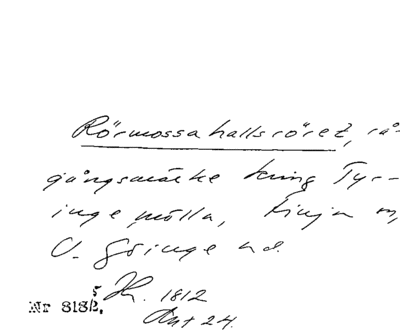 Rörmossahallsröret, rå-
gångsmärke kring Tyr-
inge mölla, Finja sn,
V. Göinge hd.
Hk. 1812
Akt 24.
Nr 8185.